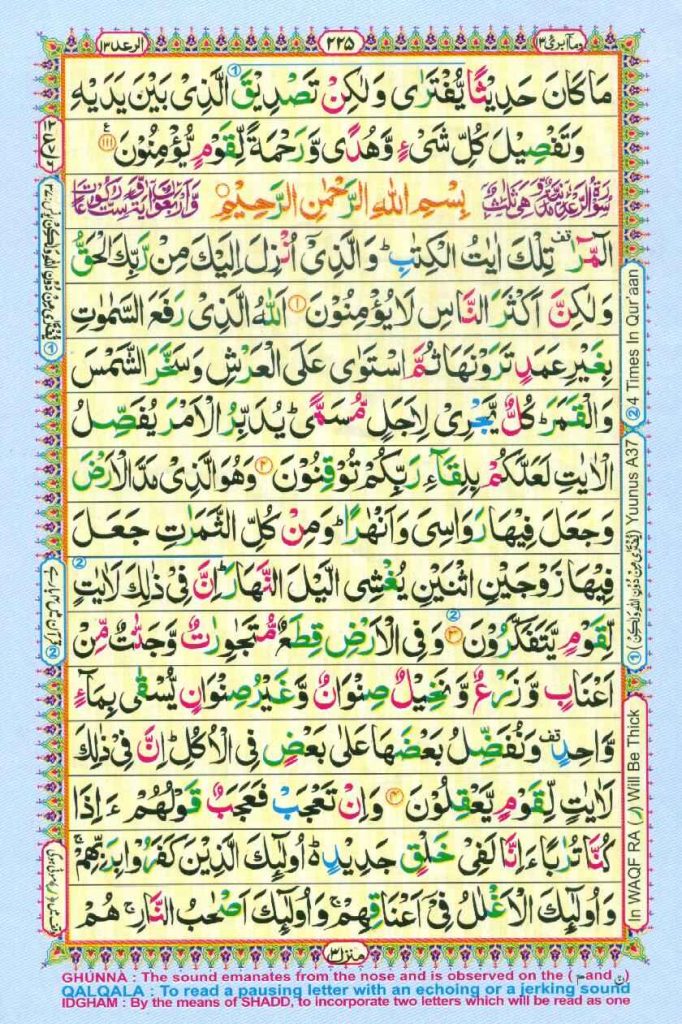 وما ابرئ ١٣
٢٢٥
الرعد ١٣
مَا كَانَ حَدِيْثًا يُّفْتَرٰى وَلٰكِنْ تَصْدِيْقَ الَّذِىْ بَيْنَ يَدَيْهِ
وَتَفْصِيْلَ كُلِّ شَىْءٍ وَّهُدًى وَّرَحْمَةً لِّقَوْمٍ يُّؤْمِنُوْنَ ١١١
سُوْرَةُ الرَّعْدِ مَدَنِيَّةٌ وَّهِىَ ثَلٰثٌ بِسْمِ اللّٰهِ الرَّحْمٰنِ الرَّحِيْمِ وَّاَرْبَعُوْنَ اٰيَةً وَّسِتُّ رُكُوْعَاتٍ
الٓمّٓرٰ تِلْكَ اٰيٰتُ الْكِتٰبِ ؕ وَالَّذِىْۤ اُنْزِلَ اِلَيْكَ مِنْ رَّبِّكَ الْحَقُّ
وَلٰكِنَّ اَكْثَرَ النَّاسِ لَا يُؤْمِنُوْنَ ١ اَللّٰهُ الَّذِىْ رَفَعَ السَّمٰوٰتِ
بِغَيْرِ عَمَدٍ تَرَوْنَهَا ثُمَّ اسْتَوٰى عَلَى الْعَرْشِ وَسَخَّرَ الشَّمْسَ
وَالْقَمَرَ ؕ كُلٌّ يَّجْرِىْ لِاَجَلٍ مُّسَمًّى ؕ يُدَبِّرُ الْاَمْرَ يُفَصِّلُ
الْاٰيٰتِ لَعَلَّكُمْ بِلِقَآءِ رَبِّكُمْ تُوْقِنُوْنَ ٢ وَهُوَ الَّذِىْ مَدَّ الْاَرْضَ
وَجَعَلَ فِيْهَا رَوَاسِىَ وَاَنْهٰرًا ؕ وَمِنْ كُلِّ الثَّمَرٰتِ جَعَلَ
فِيْهَا زَوْجَيْنِ اثْنَيْنِ يُغْشِى الَّيْلَ النَّهَارَ ؕ اِنَّ فِىْ ذٰلِكَ لَاٰيٰتٍ
لِّقَوْمٍ يَّتَفَكَّرُوْنَ ٣ وَفِى الْاَرْضِ قِطَعٌ مُّتَجٰوِرٰتٌ وَّجَنّٰتٌ مِّنْ
اَعْنَابٍ وَّزَرْعٌ وَّنَخِيْلٌ صِنْوَانٌ وَّغَيْرُ صِنْوَانٍ يُّسْقٰى بِمَآءٍ
وَّاحِدٍ وَنُفَضِّلُ بَعْضَهَا عَلٰى بَعْضٍ فِى الْاُكُلِ ؕ اِنَّ فِىْ ذٰلِكَ
لَاٰيٰتٍ لِّقَوْمٍ يَّعْقِلُوْنَ ٤ وَاِنْ تَعْجَبْ فَعَجَبٌ قَوْلُهُمْ ءَاِذَا
كُنَّا تُرٰبًا ءَاِنَّا لَفِىْ خَلْقٍ جَدِيْدٍ ؕ اُولٰٓئِكَ الَّذِيْنَ كَفَرُوْا بِرَبِّهِمْ ۚ
وَاُولٰٓئِكَ الْاَغْلٰلُ فِىْۤ اَعْنَاقِهِمْ ۚ وَاُولٰٓئِكَ اَصْحٰبُ النَّارِ ۚ هُمْ
منزل ٣
② 4 Times In Qur'aan
① (يُفْتَرٰى مِنْ دُوْنِ اللّٰهِ وَلٰكِنْ) Yuunus A37
In WAQF RA (ر) Will Be Thick
GHUNNA : The sound emanates from the nose and is observed on the (مّ and نّ)
QALQALA : To read a pausing letter with an echoing or a jerking sound
IDGHAM : By the means of SHADD, to incorporate two letters which will be read as one